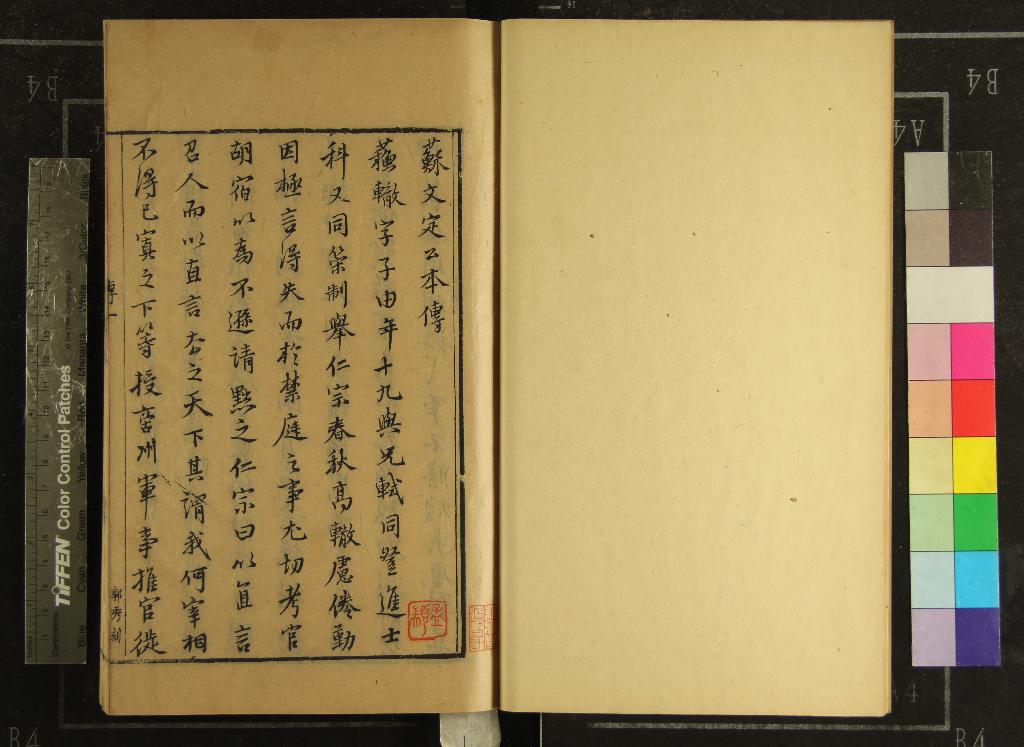 蘇文定公本傳
蘇轍字子由年十九與兄軾同登進士
科又同策制舉仁宗春秋高轍慮倦勤
因極言得失而於禁庭之事尤切考官
胡宿以為不遜請黜之仁宗曰以直言
召人而以直言弃之天下其謂我何宰相
不得已寘之下等授商州軍事推官從
傳一
郭秀刻
TIFFEN Color Control Patches
Blue
Cyan
Green
Yellow
Red
Magenta
White
3/Color
Black
B4
B4
A4
A4
B4
B4